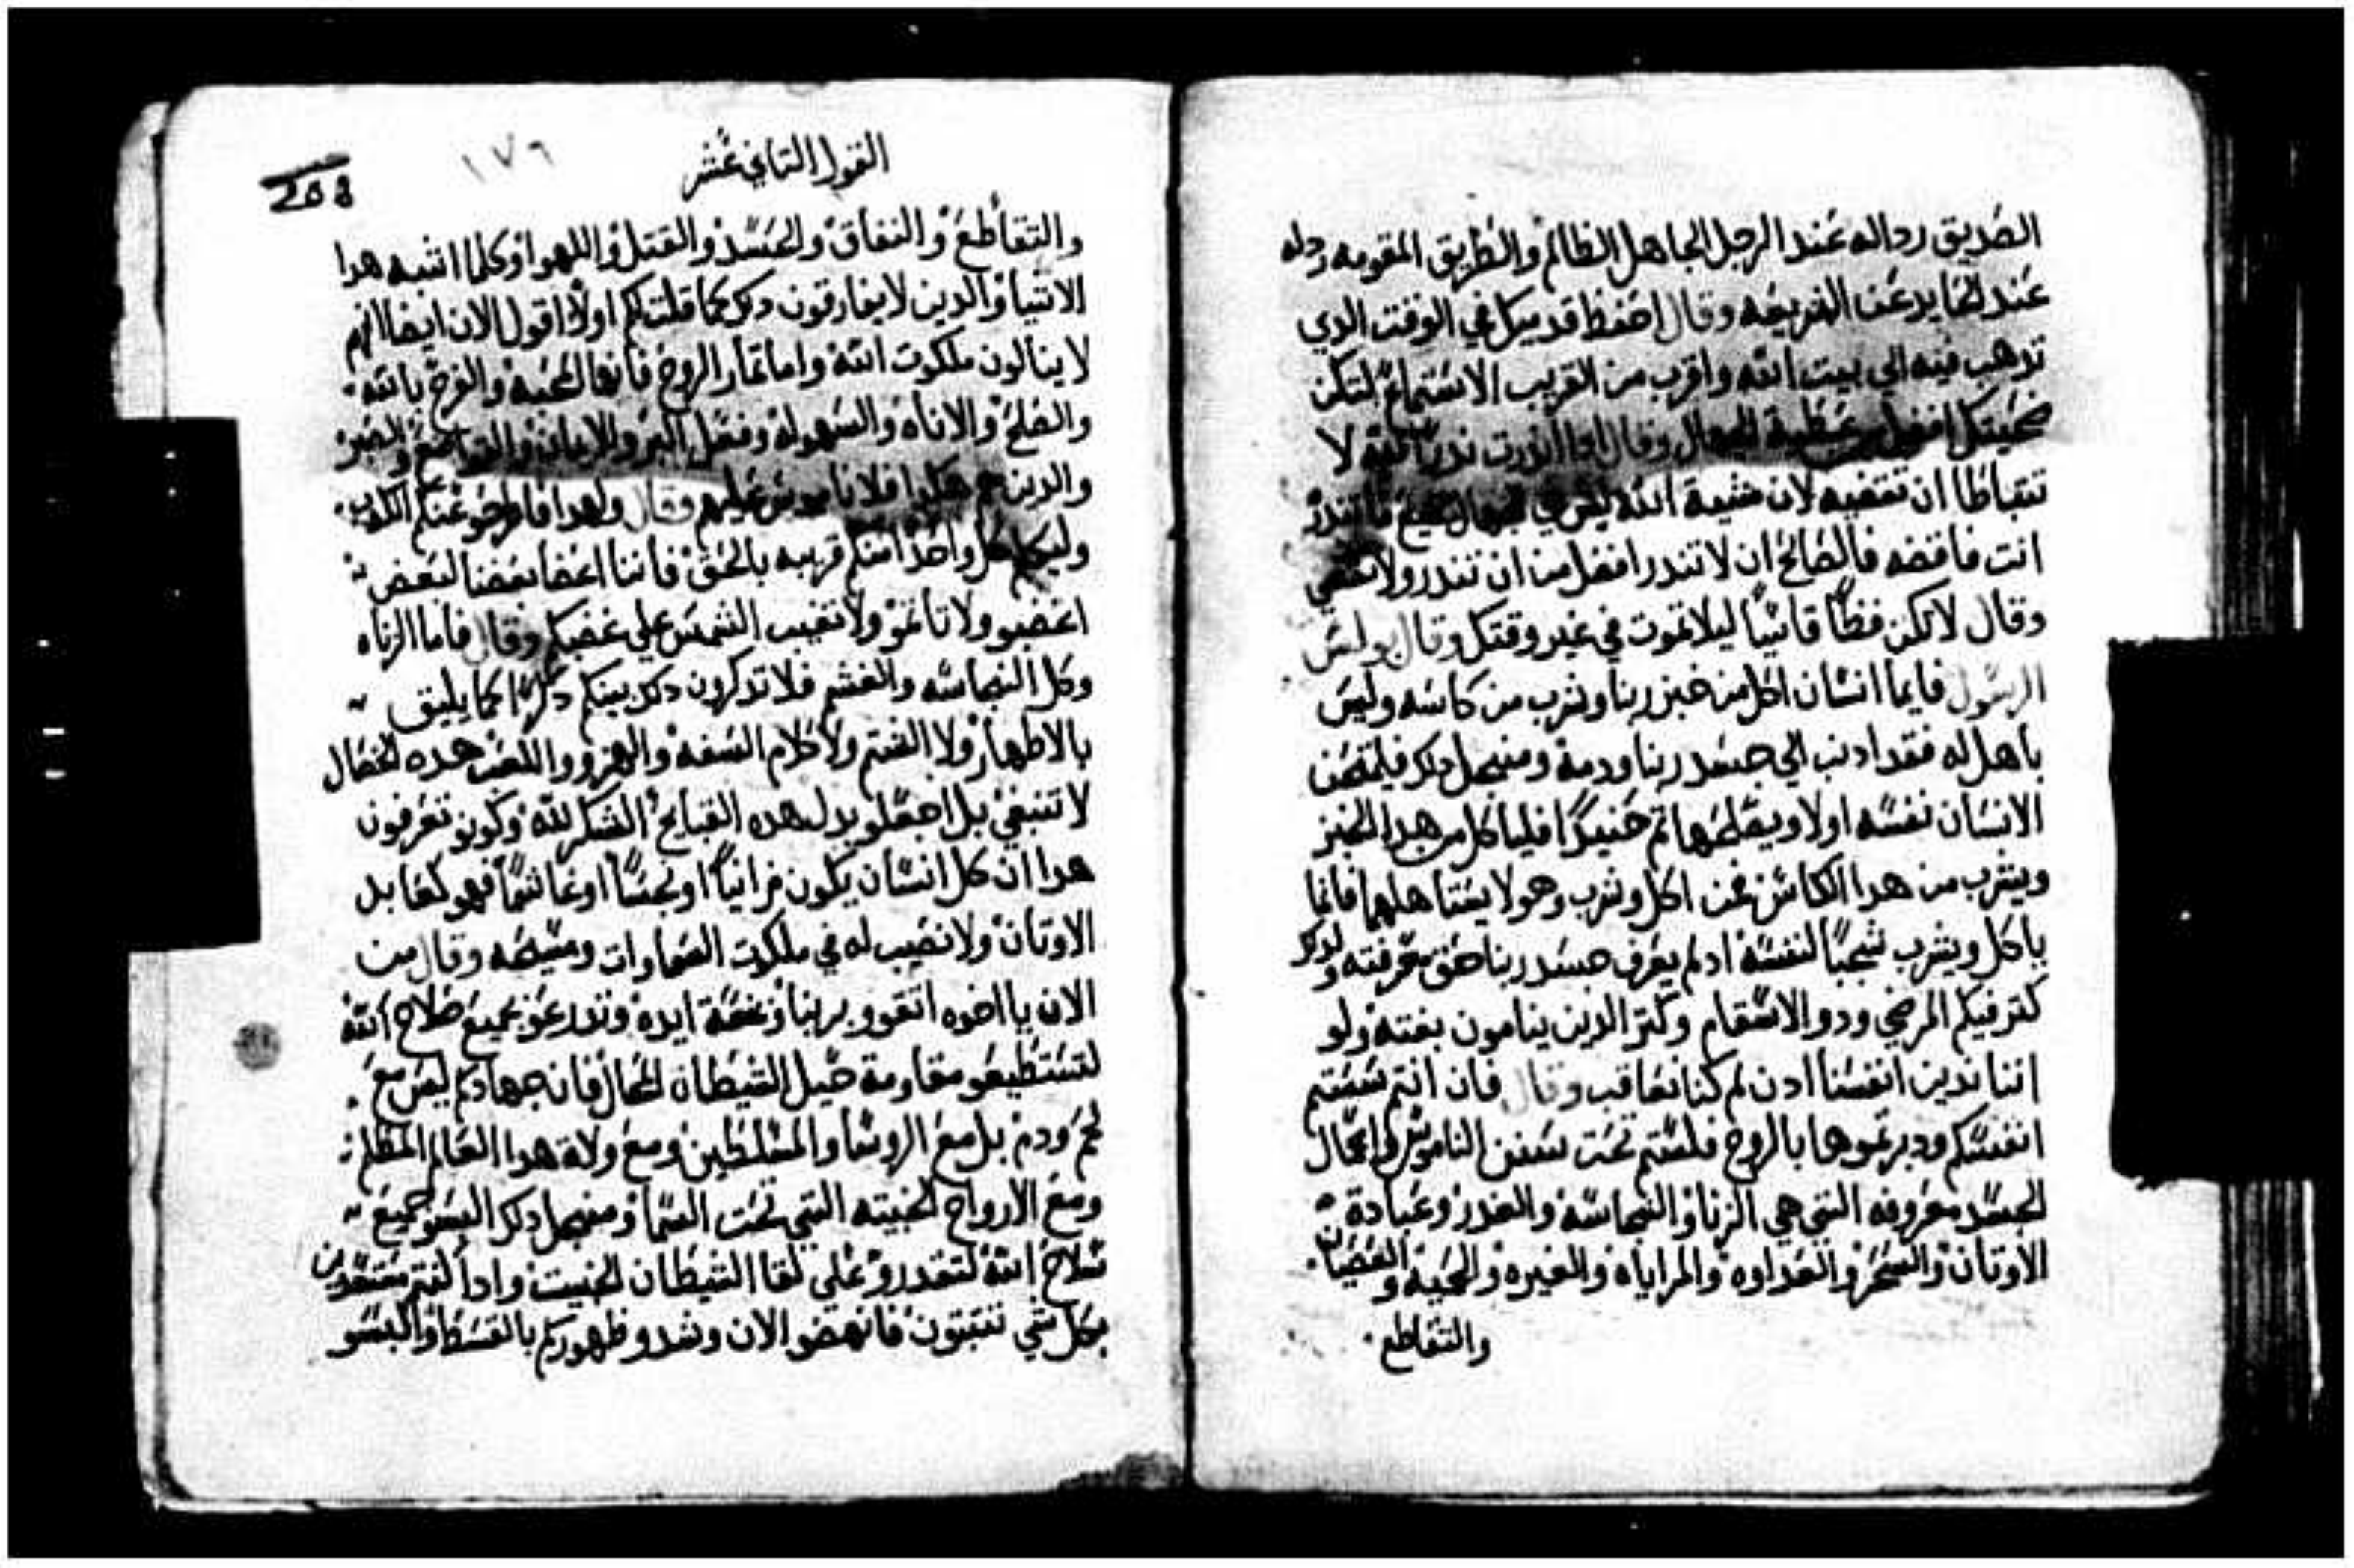 الصديق رداله عند الرجل الجاهل الظالم والطريق المقومه رداله
عند الحايد عن الشريعه وقال احفظ قدميك في الوقت الدي
تدهب فيه الي بيت الله واقرب من القريب الاستماع لتكن
ضحيتك افضل من عطية الجهال وقال ادا اندرت ندرا لله لا
تتباطا ان تقضيه لان مشية الله ليس في الجهال فما تندر
انت فاقضه فالصالح ان لا تندر افضل من ان تندر ولا تقضي
وقال لا تكن فظاً قاسياً ليلا تموت في غير وقتك وقال بولس
الرسول فايما انسان اكل من خبز ربنا وشرب من كاسه وليس
باهل له فقد ادنب الي جسد ربنا ودمه ومن اجل دلك فليمتحن
الانسان نفسه اولا ويطهرها تم حنيداً فلياكل من هدا الخبز
ويشرب من هدا الكاس فمن اكل وشرب وهو لا يستاهلهما فانما
ياكل ويشرب شجباً لنفسه اد لم يعرف جسد ربنا حق معرفته ولدلك
كتر فيكم المرضي ودو الاسقام وكتر الدين ينامون بغته ولو
اننا ندين انفسنا ادن لم كنا نعاقب وقال فان انتم سستم
انفسكم ودبرتموها بالروح فلستم تحت سنن الناموس واعمال
الجسد معروفه التي هي الزنا والنجاسه والغدر وعبادة
الاوتان والسحر والعداوه والمراياه والغيره والحميه والعصيان
والتقاطع
القول التاني عشر
١٧٦
208
والتقاطع والنفاق والحسد والقتل واللهوا وكلما اشبه هدا
الاشيا والدين لا يفارقون دلك كما قلت لكم اولا اقول الان ايضا انهم
لا ينالون ملكوت الله واما تمار الروح فانها المحبه والفرح بالله
والصلح والاناه والسهوله وفعل البر والايمان والتواضع والصبر
والدين هم هكدا فلا ناموس عليهم وقال ولهدا فاطرحو عنكم الكدب
وليكلم كل واحدا منكم قريبه بالحق فاننا اعضا بعضنا لبعض
اغضبو ولا تاتمو ولا تغيب الشمس علي غضبكم وقال فاما الزناه
وكل النجاسه والغشم فلا تدكرون دلك بينكم دكراً كما يليق
بالاطهار ولا الشتم ولا كلام السفه والهزو واللعب هده الخصال
لا تنبغي بل اجعلو بدل هده القبايح الشكر لله وكونو تعرفون
هدا ان كل انسان يكون زانياً او نجساً او غاشماً فهو كعابد
الاوتان ولا نصيب له في ملكوت السماوات ومسيحه وقال من
الان يا اخوه اتقوو بربنا وبعصمة ايده وتدرعو بجميع صلاح الله
لتستطيعو مقاومة حيل الشيطان المحال فان جهادكم ليس مع
لحم ودم بل مع الروسا والمسلطين ومع ولاة هدا العالم المظلم
ومع الارواح الخبيته التي تحت السما ومن اجل دلك البسو جميع
سلاح الله لتقدرو علي لقا الشيطان الخبيت وادا كنتم مستعدين
بكل شي تتبتون فانهضو الان وشدو ظهوركم بالقسط والبسو